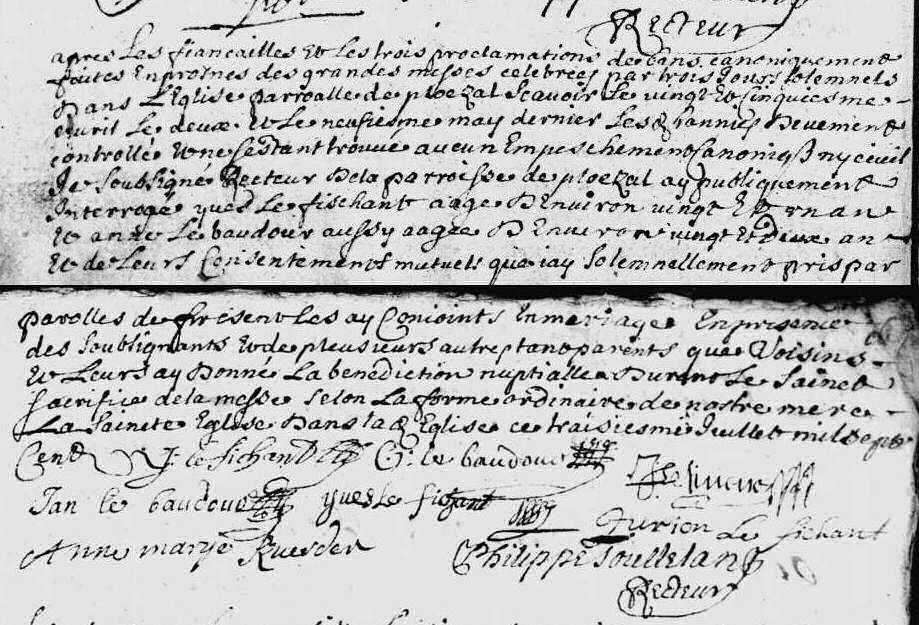 Recteur
apres Les fiancailles Et Les trois proclamations de bans canoniquement
faites En prosnes des grandes messes celebrees par trois Jours solemnels
Dans L'Eglise parroalle de ploezal scavoir Le vingt Et Cinquiesme
avril Le deuxe Et Le neufiesme may dernier Les bannies Devement
controllé Et ne sestant trouvé aucun Empeschement Canoniq ny civil
Je soubsigne Recteur De la parroisse de ploezal ay publiquement
Interrogé yves Le fischant aage D'Environ vingt Et un an
Et anne Le baudour aussy aagee D'Environ vingt Et Deux an
Et de Leurs Consentements mutuels que iay solemnellement pris par
parolles de present Les ay Conioints En mariage En presence
des soubsignants Et de plusieurs autres tant parents que Voisins
Et Leurs ay Donné La benediction nuptialle Durant Le Sainct
Sacrifice de la messe selon La forme ordinaire de nostre mere
La Saincte Eglise Dans lad Eglise ce traisiesme Juillet mil Sept
Cent J: le fichant G: le baudour
Jan le baudour yves le fichant
Gurion Le fichant
Anne marye Philippe
Recteur